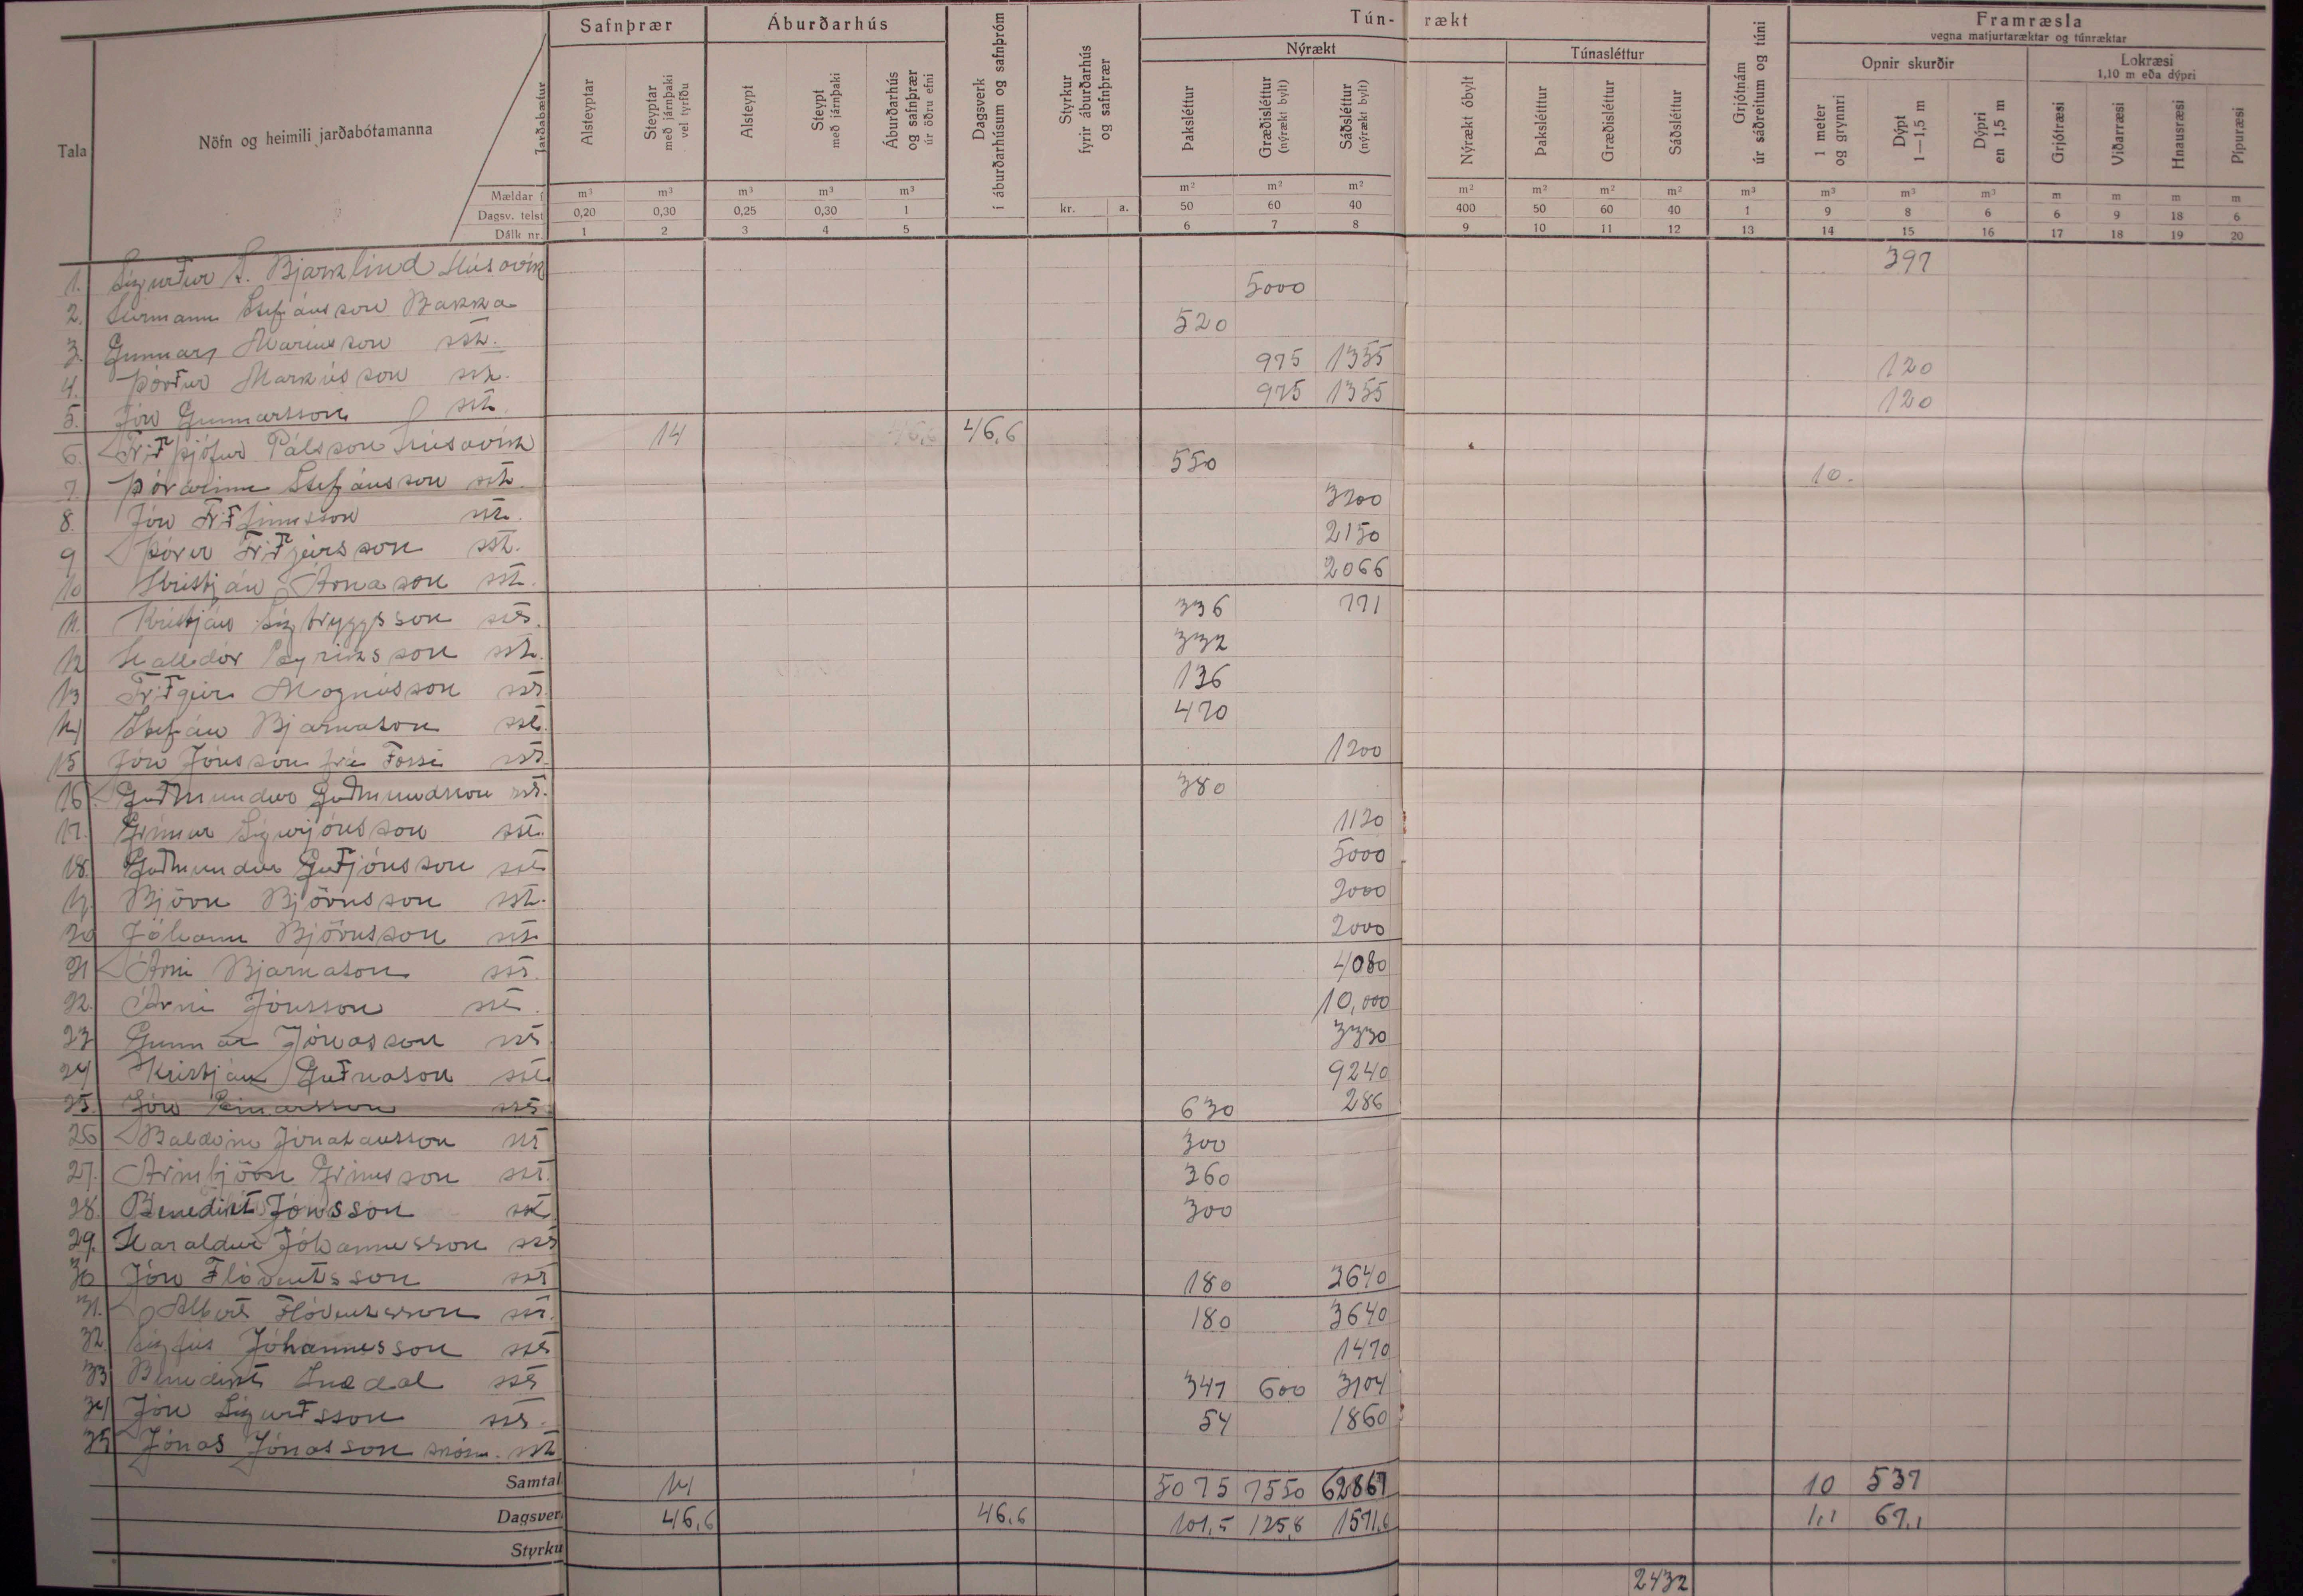 Safnþrær Áburðarhús Tún- rækt Framræsla
vegna matjurtaræktar og túnræktar
Nýrækt Túnasléttur Opnir skurðir Lokræsi
1,10 m eða dýpri
Tala Nöfn og heimili jarðabótamanna Jarðabætur
Alsteyptar
Steyptar með járnþaki vel tyrfðu
Alsteypt
Steypt með járnþaki
Áburðarhús og safnþrær úr öðru efni
Dagsverk í áburðarhúsum og safnþróm
Styrkur fyrir áburðarhús og safnþrær
Þaksléttur
Græðisléttur (nýrækt bylt)
Sáðsléttur (nýrækt bylt)
Nýrækt óbylt
Þaksléttur
Græðisléttur
Sáðsléttur
Grjótnám úr sáðreitum og túni
1 meter og grynnri
Dýpt 1—1,5 m
Dýpri en 1,5 m
Grjótræsi
Viðarræsi
Hnausræsi
Pípuræsi
Mældar í m³ m³ m³ m³ m³ m² m² m² m² m² m² m² m³ m³ m³ m³ m m m m
Dagsv. telst 0,20 0,30 0,25 0,30 1 kr. a. 50 60 40 400 50 60 40 1 9 8 6 6 9 18 6
Dálk nr. 1 2 3 4 5 6 7 8 9 10 11 12 13 14 15 16 17 18 19 20
1. Sigurður S. Bjarklind Húsavík 397
2. Hermann Stefánsson Bakka 5000
3. Gunnar Maríusson sst. 520
4. Þórður Markússon sst. 975 1355 120
5. Jón Gunnarsson sst. 975 1355 120
6. Friðþjófur Pálsson Húsavík 14 46,6 46,6
7. Þórarinn Stefánsson sst. 550 10.
8. Jón Friðfinnsson sst. 3200
9 Þórir Friðgeirsson sst. 2150
10 Kristján Árnason sst. 2066
11. Kristján Sigtryggsson sst. 336 771
12 Halldór Eyriksson sst. 332
13 Friðgeir Magnússon sst. 136
14 Stefán Bjarnason sst. 470
15 Jón Jónsson frá Fossi sst. 1200
16 Guðmundur Guðmundsson sst. 380
17. Grímur Sigurjónsson sst. 1120
18. Guðmundur Guðjónsson sst 5000
19. Björn Björnsson sst. 2000
20 Jóhann Björnsson sst 2000
21 Árni Bjarnason sst. 4080
22. Árni Jónsson sst. 10,000
23 Gunnar Jónasson sst 3330
24 Kristján Guðnason sst 9240
25. Jón Einarsson sst 630 286
26 Baldvin Jónatansson sst 300
27. Arinbjörn Grímsson sst. 360
28. Benedikt Jónsson sst 300
29. Haraldur Jóhannesson sst
30 Jón Flóventsson sst 180 3640
31. Albert Flóventsson sst. 180 3640
32. Sigfús Jóhannesson sst 1470
33 Benedikt Snædal sst 347 600 3104
34 Jón Sigurðsson sst. 54 1860
35 Jónas Jónasson sst
Samtal 14 5075 7550 62867 10 537
Dagsver 46,6 46,6 101,5 125,8 1571,6 1,1 67,1
Styrku
2432